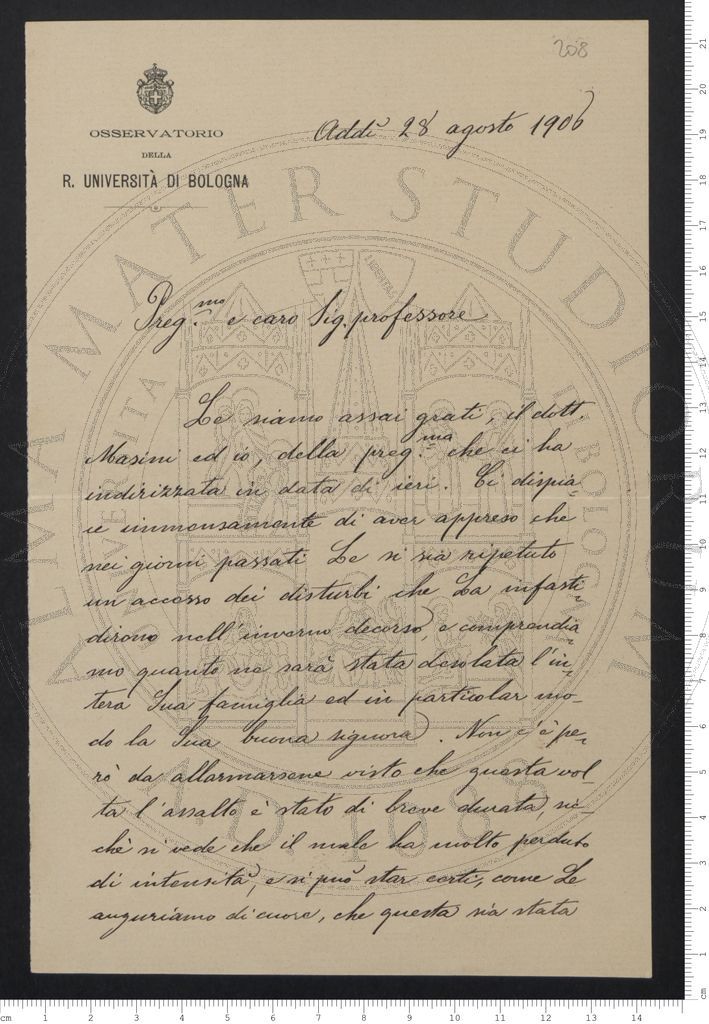 208
OSSERVATORIO
DELLA
R. UNIVERSITÀ DI BOLOGNA
Addì 28 agosto 1906
Preg.mo e caro Sig. professore
Le siamo assai grati, il dott.
Masini ed io, della preg.ma che ci ha
indirizzata in data di ieri. Ci dispia-
ce immensamente di aver appreso che
nei giorni passati Le si sia ripetuto
un accesso dei disturbi che La infasti-
dirono nell'inverno decorso, e comprendia-
mo quanto ne sarà stata desolata l'in-
tera Sua famiglia ed in particolar mo-
do la Sua buona signora. Non c'è pe-
rò da allarmarsene visto che questa vol-
ta l'assalto è stato di breve durata, sic-
chè si vede che il male ha molto perduto
di intensità, e si può star certi, come Le
auguriamo di cuore, che questa sia stata
ALMA MATER STUDIORUM
A.D. 1088
LIBERTAS